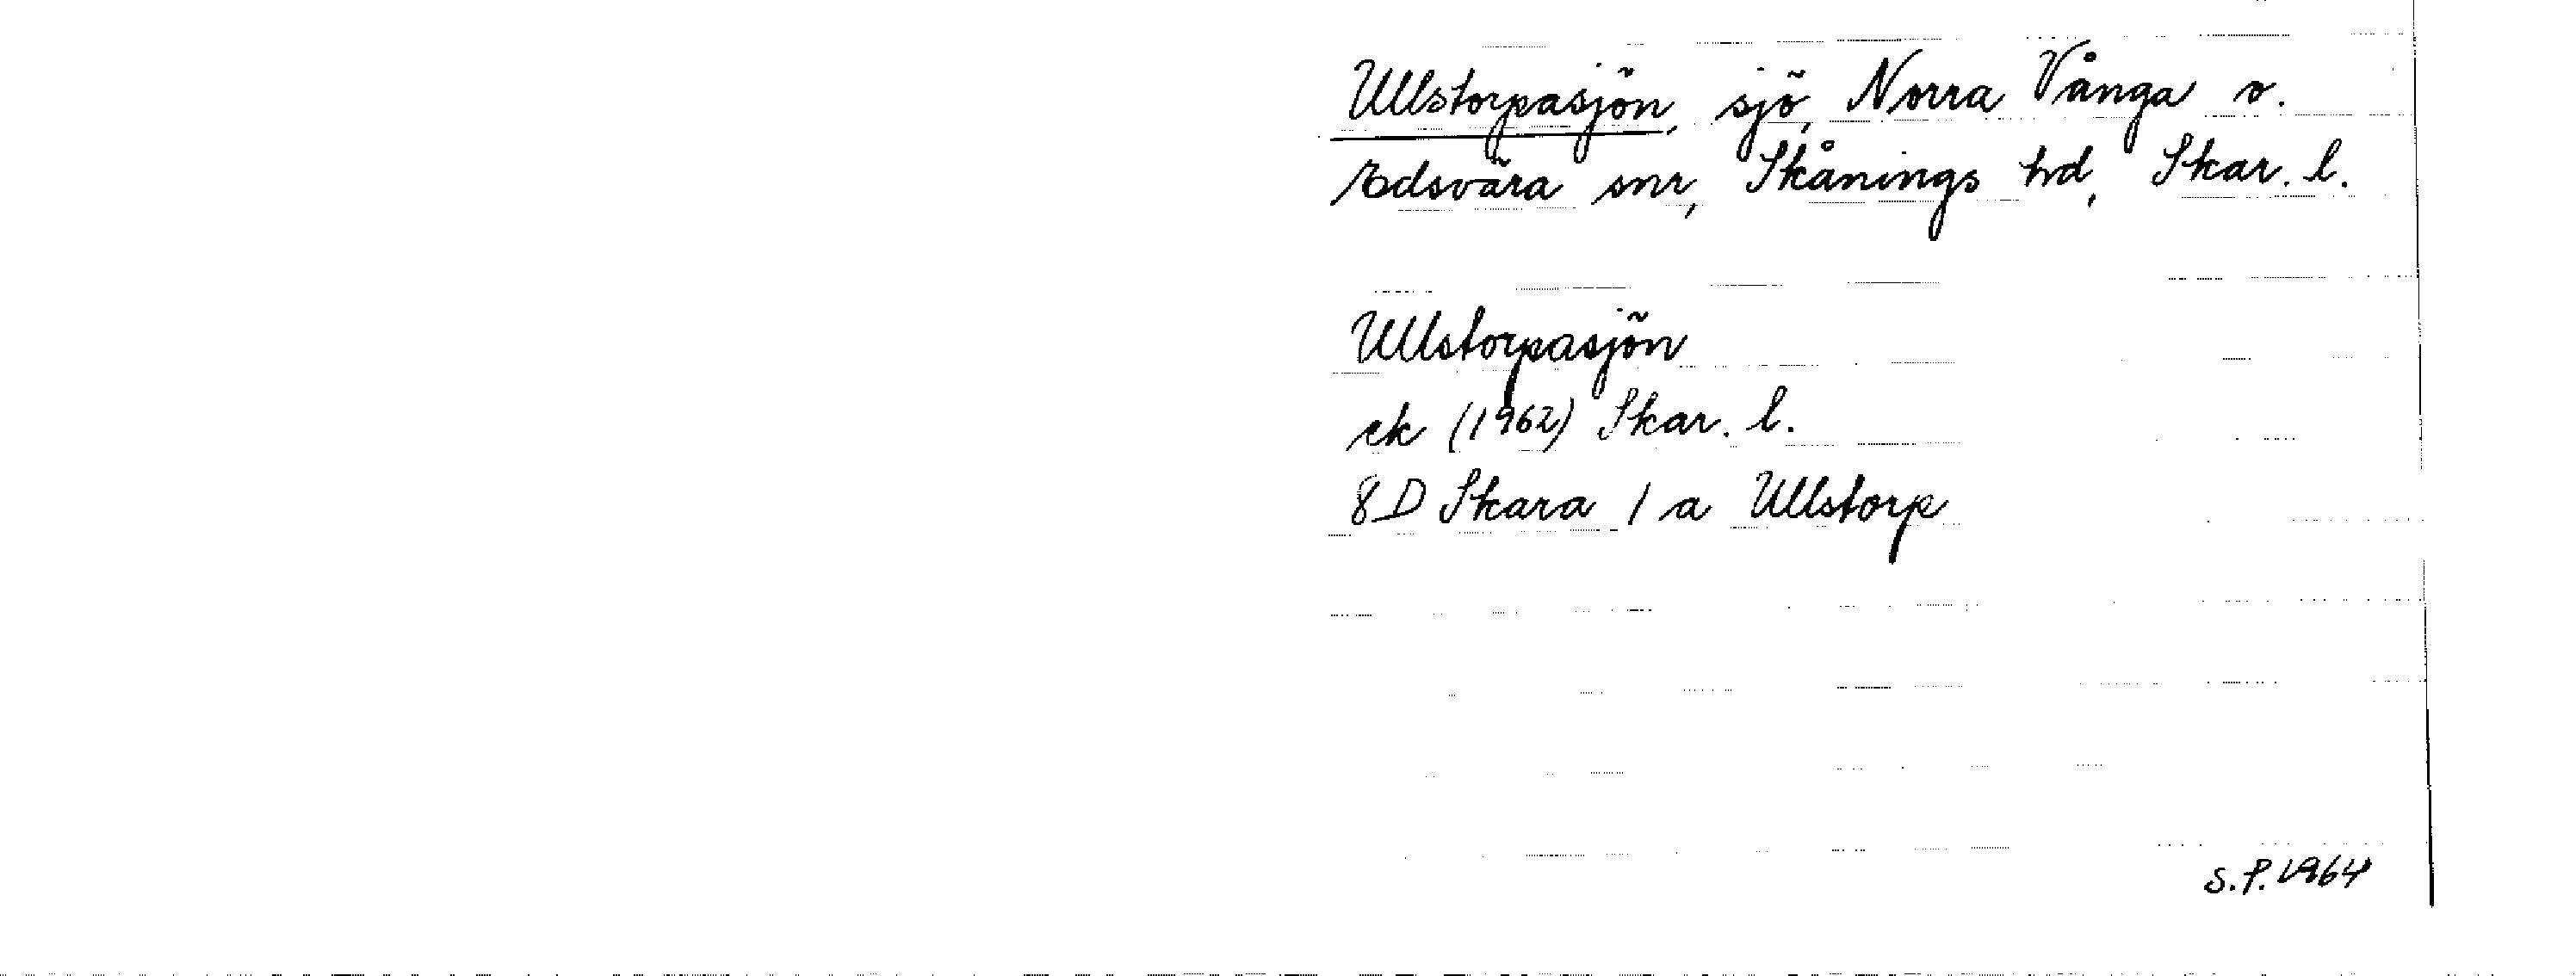 Ullstorpasjön, sjö, Norra Vånga o.
Edsvära snr, Skånings hd, Skar. l.
Ullstorpasjön
ek (1962) Skar. l.
8D Skara 1 a Ullstorp
S.P. 1964